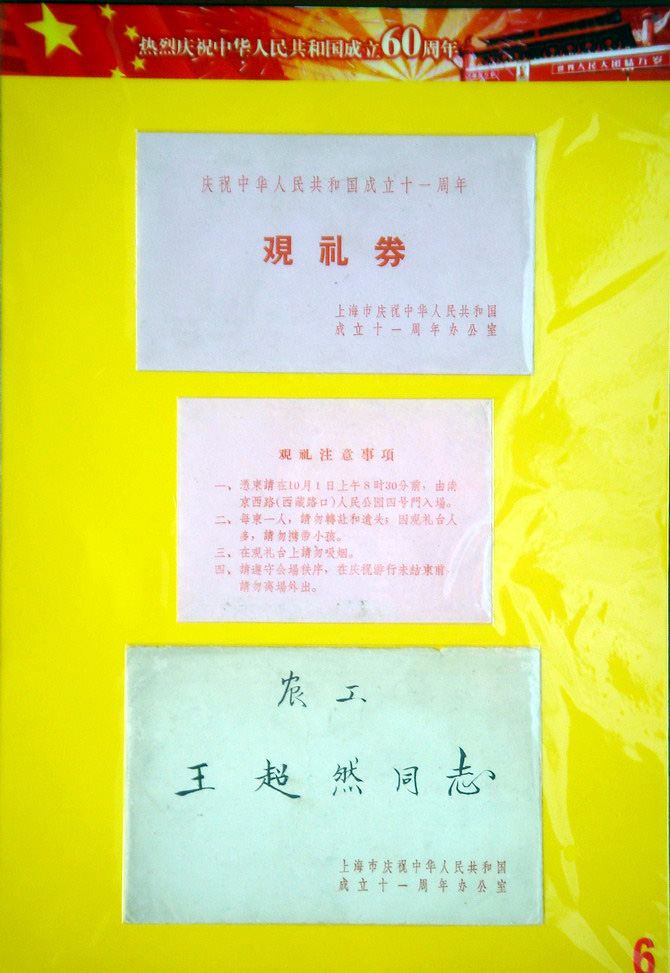 热烈庆祝中华人民共和国成立60周年
世界人民大团结万岁
庆祝中华人民共和国成立十一周年
观礼券
上海市庆祝中华人民共和国
成立十一周年办公室
观礼注意事項
一、憑柬請在10月1日上午8时30分前，由南
京西路(西藏路口)人民公园四号門入場。
二、每柬一人，請勿轉訨和遺失；因观礼台人
多，請勿携带小孩。
三、在观礼台上請勿吸烟。
四、請遵守会場秩序，在庆祝游行未結束前
請勿离場外出。
农工
王超然同志
上海市庆祝中华人民共和国
成立十一周年办公室
6